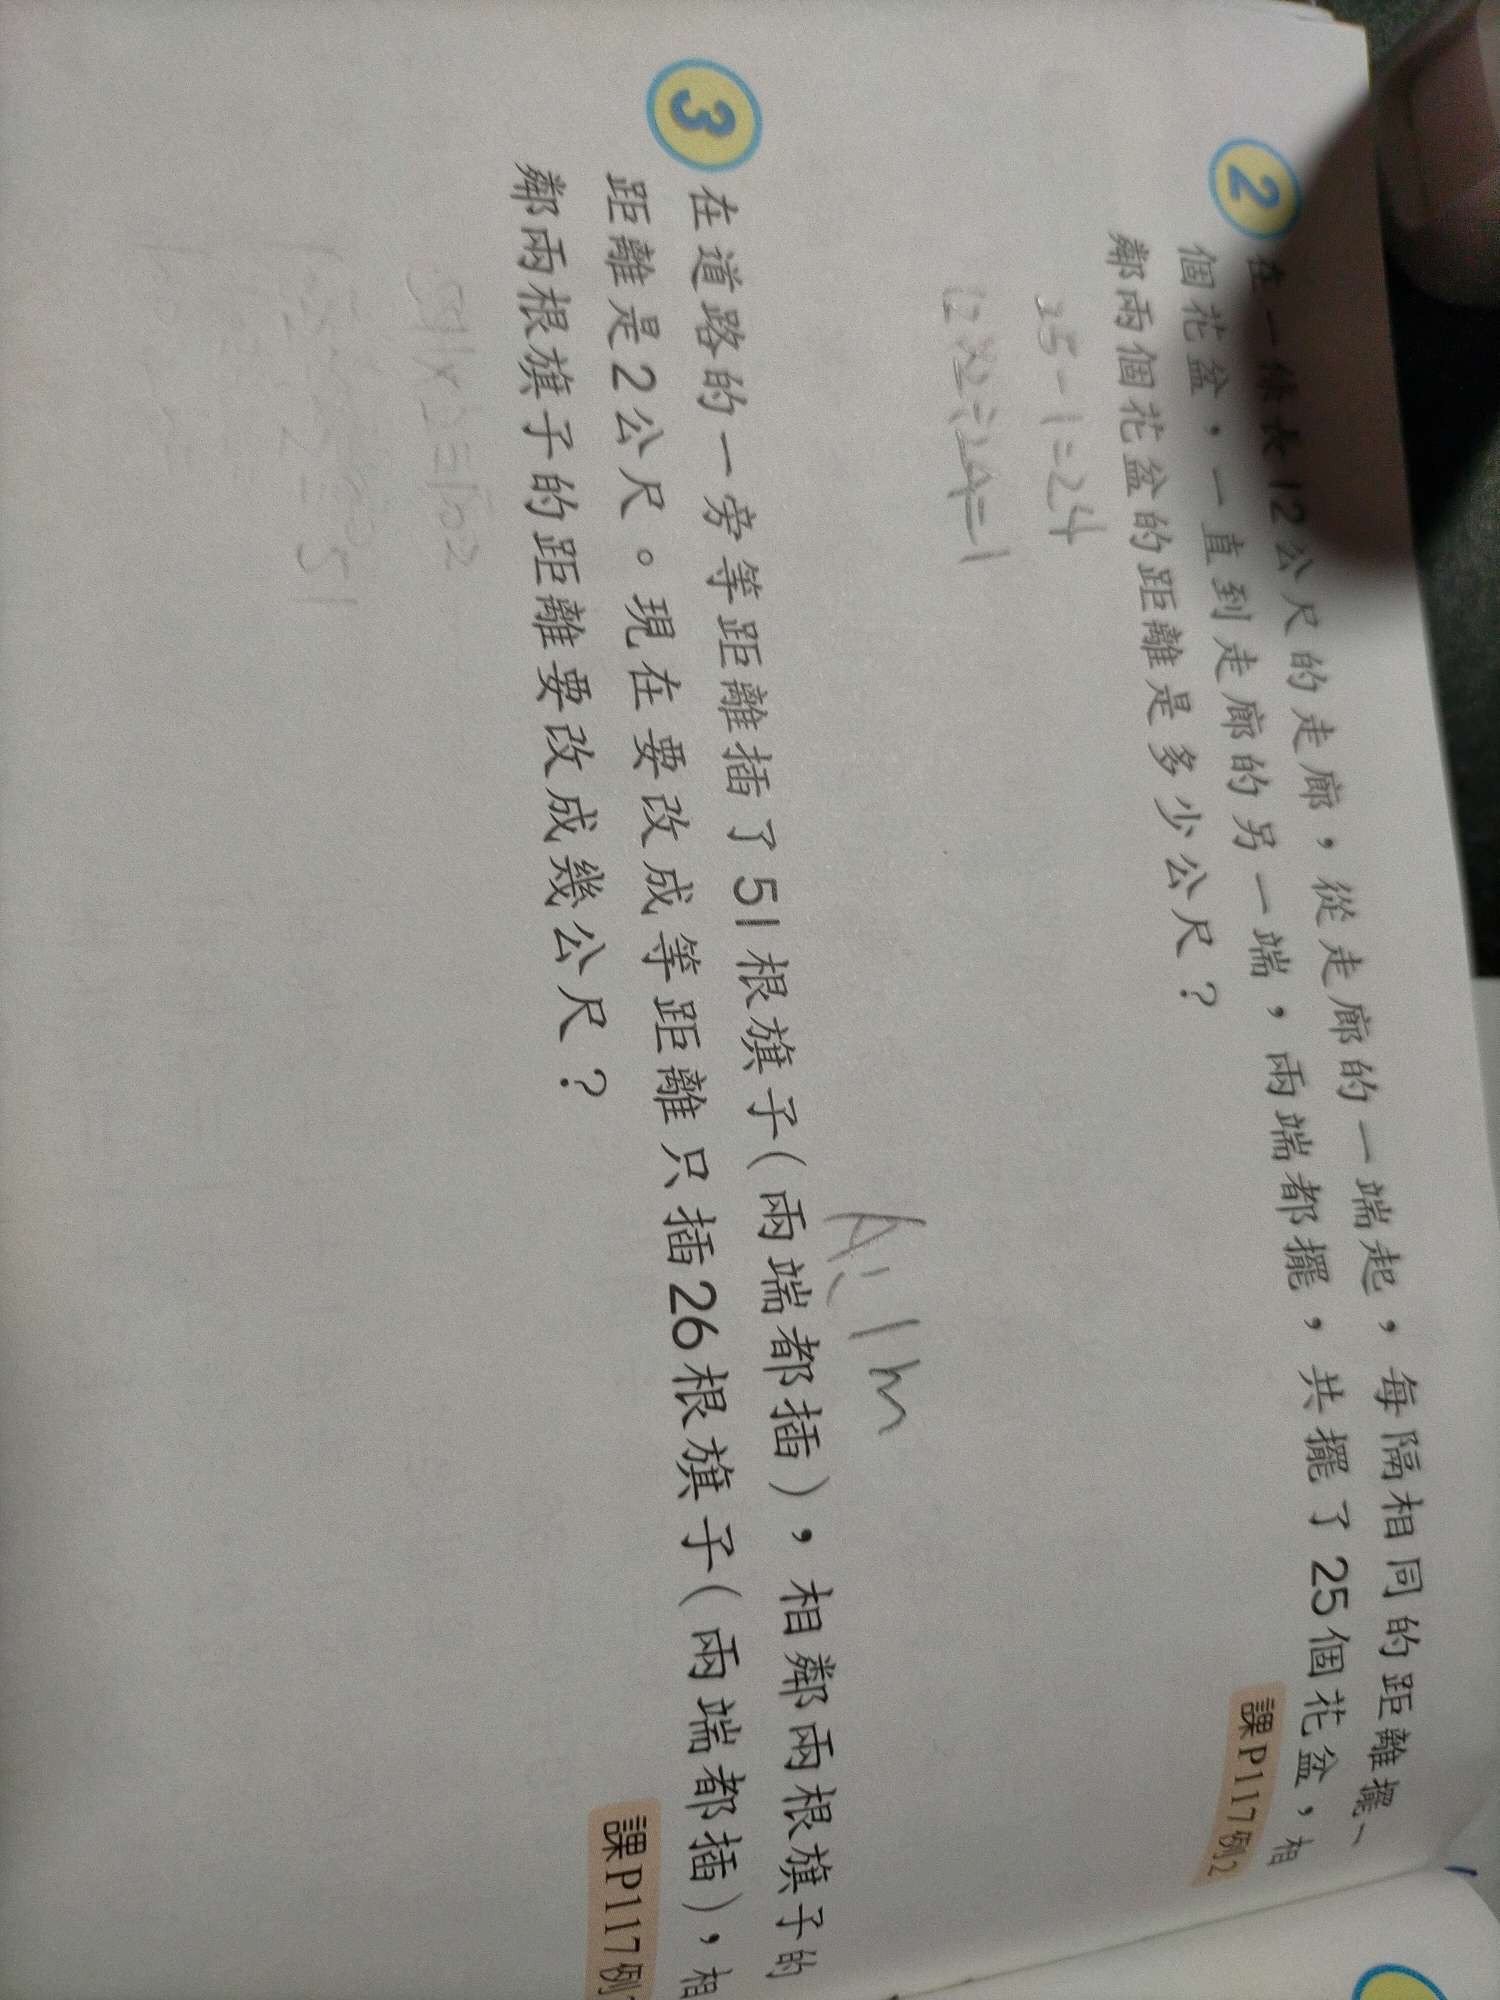 2 在一條長12公尺的走廊，從走廊的一端起，每隔相同的距離擺一
個花盆，一直到走廊的另一端，兩端都擺，共擺了25個花盆，相
鄰兩個花盆的距離是多少公尺？
課P117例2
25-1=24
12×2÷24=1
A:1m
3 在道路的一旁等距離插了51根旗子(兩端都插)，相鄰兩根旗子的
距離是2公尺。現在要改成等距離只插26根旗子(兩端都插)，相
鄰兩根旗子的距離要改成幾公尺？
課P117例
51×2=102